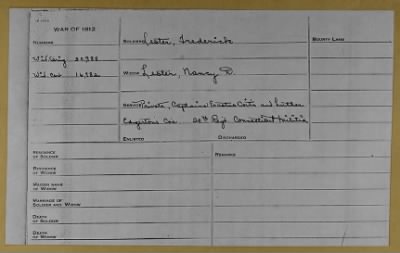 WAR OF 1812
NUMBERS
SOLDIER Lester, Frederick
BOUNTY LAND
Wid Orig 20,988
Wid Cer 16,382
WIDOW Lester, Nancy D.
SERVICE Private, Captains Certs and Luther
Edgerton's Cos. 20th Reg't Connecticut Militia
ENLISTED DISCHARGED
RESIDENCE
OF SOLDIER
REMARKS
RESIDENCE
OF WIDOW
MAIDEN NAME
OF WIDOW
MARRIAGE OF
SOLDIER AND WIDOW
DEATH
OF SOLDIER
DEATH
OF WIDOW